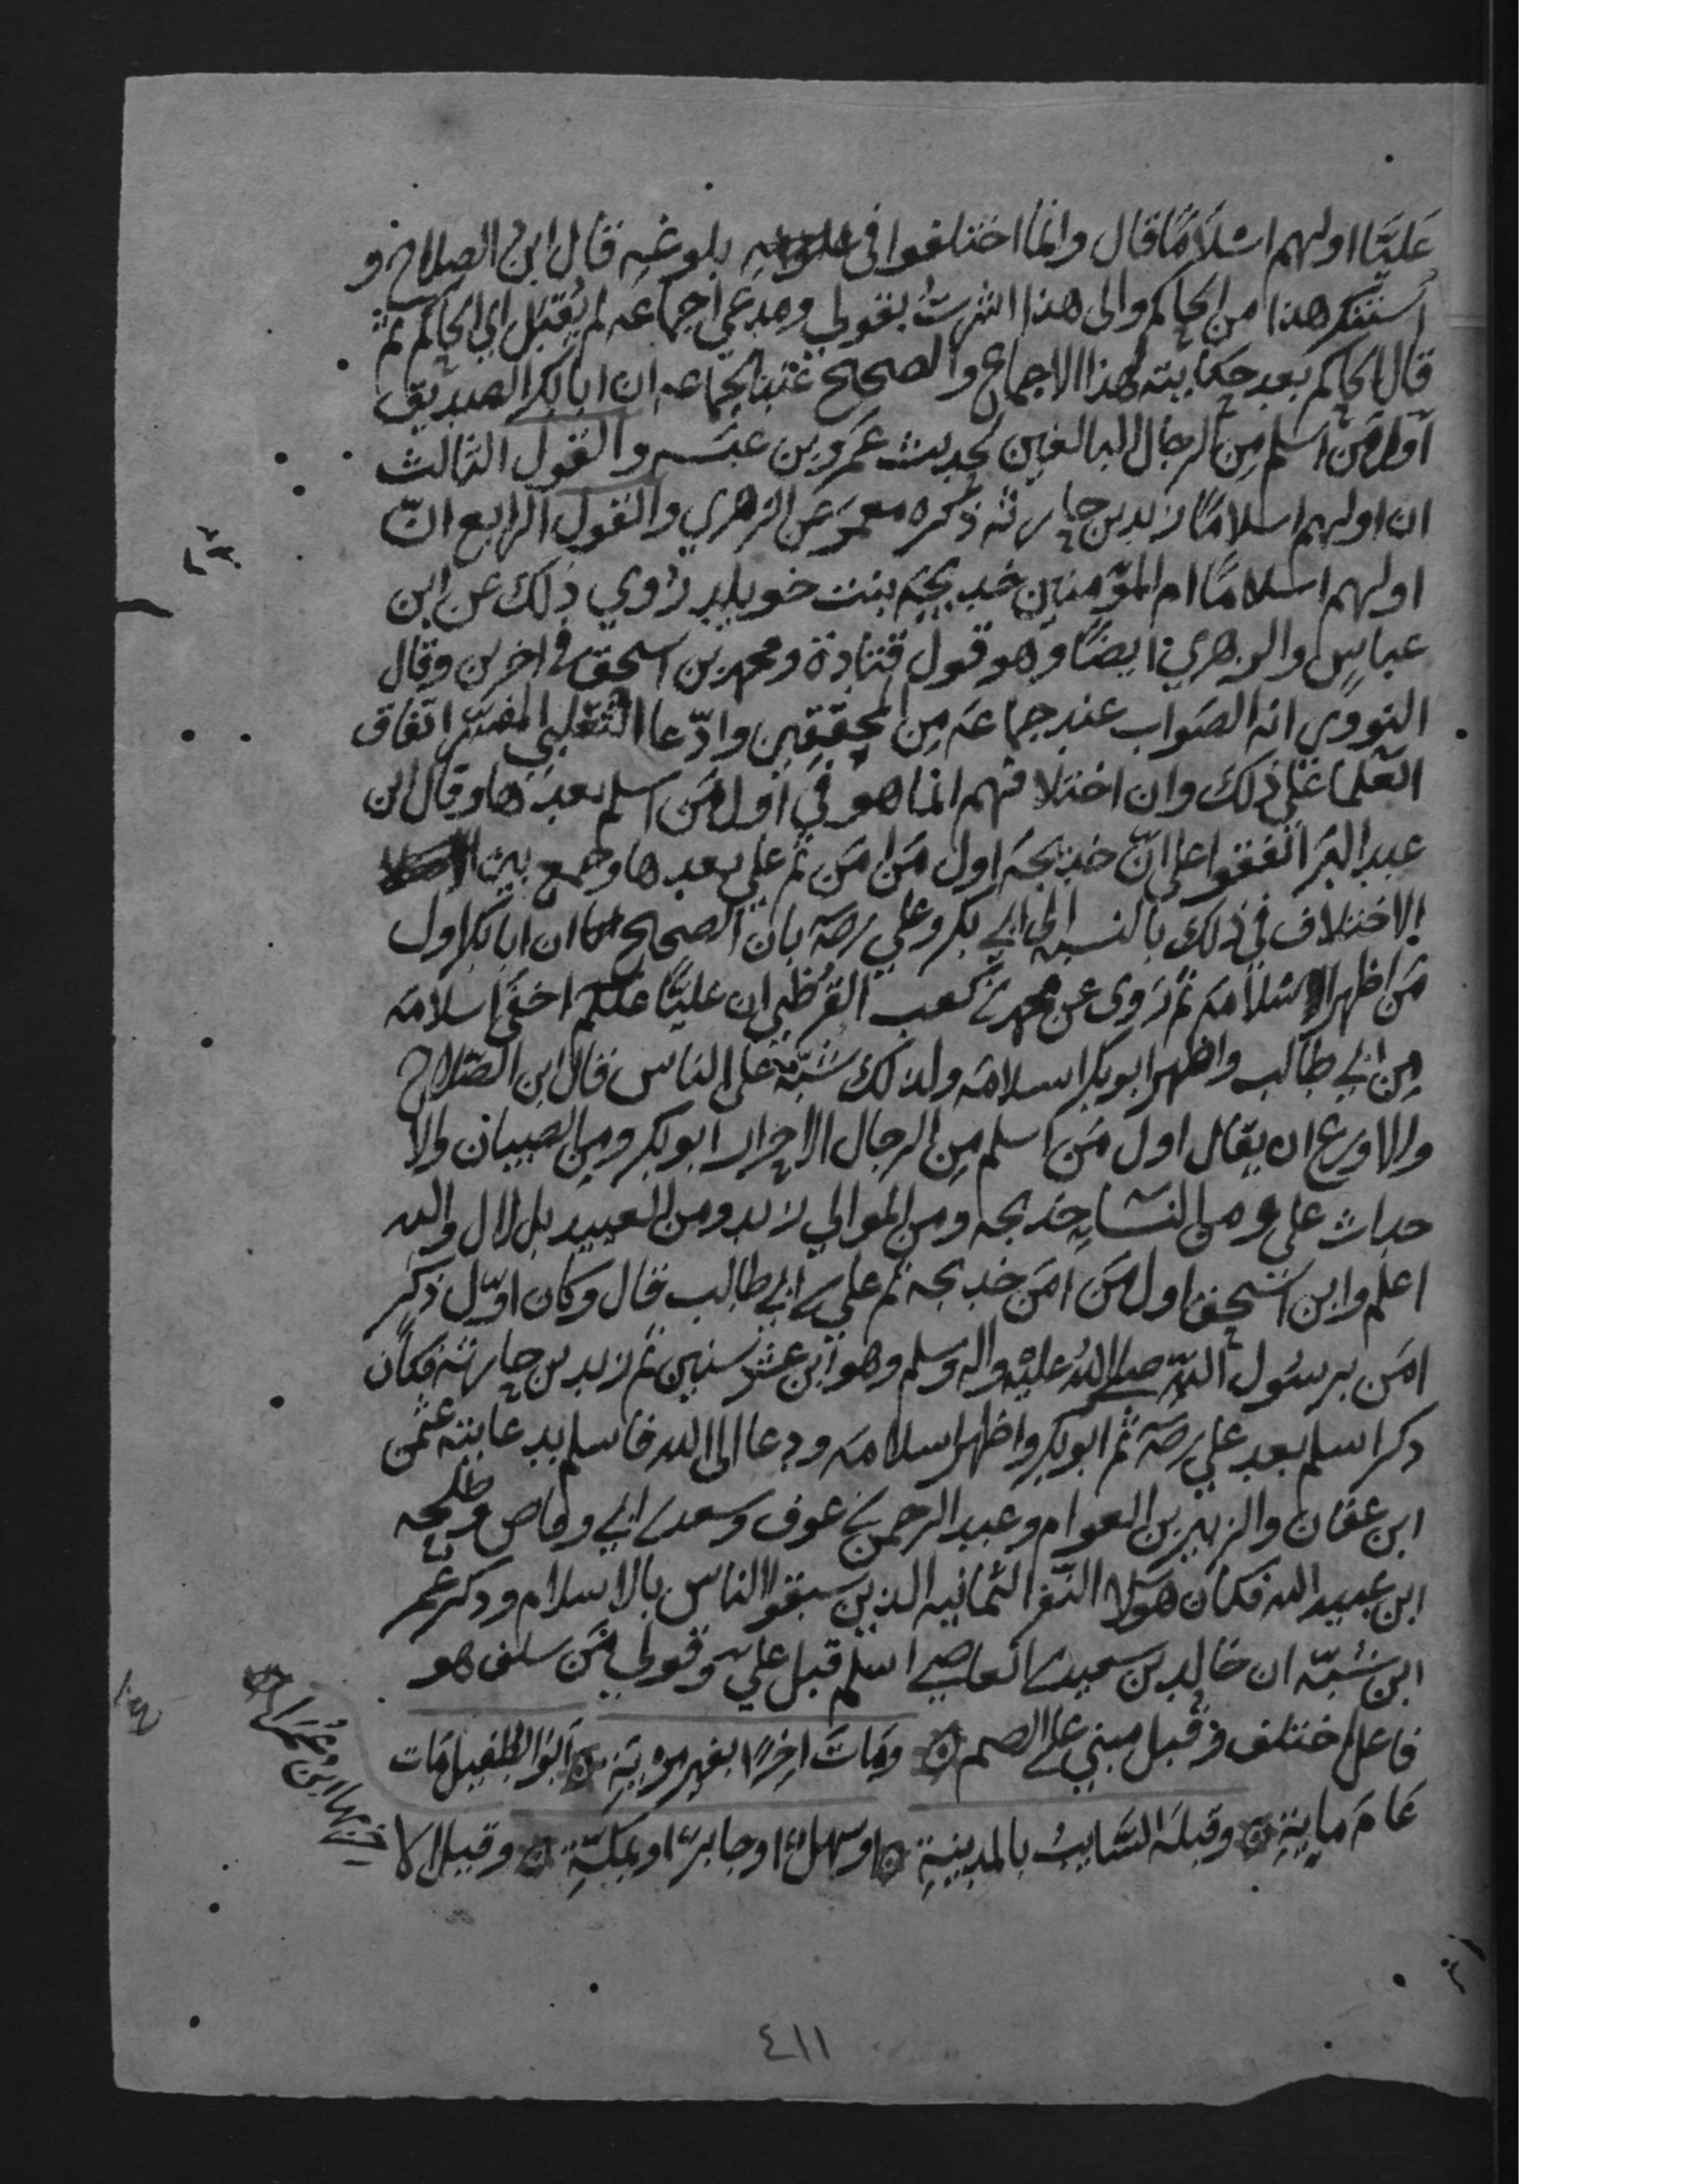 عَليًّا اولهم اسْلَامًا قال وانما اختلفوا في بلوغه قال ابن الصلاح و
اُستنكر هذا من الحاكم والى هذا اشرتُ بقولي ومدعي اجماعه لم يُقبَل اي الحاكم ثم
قال الحاكم بعد حكايته لهذا الاجماع والصحيح عند الجماعه ان ابابكر الصديق
اول مَن اسلم مِن الرجال البالغين لحديث عمرو بن عبسه والقول الثالث
ان اولهم اسلامًا زيد بن حارثه ذكره معمَر عن الزهري والقول الرابع انّ
اولهم اسلامًا ام المؤمنين خديجة بنت خويلد رُوي ذلك عن ابن
عباسٍ والزهري ايضًا وهو قول قتادة ومحمد بن اسحق في اخرين وقال
النووي انه الصَواب عند جماعَه مِن المحققين وادّعا الثعلبي المفسّر اتفاق
العلما عَلى ذلك وان اختلافهم انما هو في اول مَن اسلم بعدَها وقال ابن
عبد البَر اتفقوا على انّ خديجَه اول مَن امَن ثم علي بعدها وجمع بين
الاختلاف في ذلك بالنسبه الى ابي بكر وعلي رضه بان الصحيح ان ابابكر اول
مَن اظهر اسْلامَه ثم رَوى عن محمد بن كعب القُرظي ان عليًّا اخفَى اسلامَه
مِن ابي طالب واظهر ابوبكر اسلامَه ولذلك شبّه على الناس قال ابن الصّلاح
والاورع ان يقال اول مَن اسلم مِن الرجال الاحرار ابوبكر ومِن الصبيان والا
حداث علي ومن النسَا خديجه ومن الموالي زيد ومن العبيد بلال والله
اعلم وابن اسحق اول مَن امَن خديجه ثم علي بن ابي طالب قال وكان اوّل ذكر
امَن برسُول اللهِ صلى اللهُ عليه واله وسلم وهو ابن عشر سنين ثم زيد بن حارثه فكان
ذكر اسلم بعد علي رضه ثم ابوبكر واظهر اسلامَه ودعا الى الله فاسلم بدعايته عثمن
ابن عفان والزبير بن العوام وعبد الرحمن بن عوف وسعد بن ابي وقاص وطلحه
ابن عبيد الله فكان هَولا النفر الثمانيه الذين سبقوا الناس بالاسلام وذكر عُمر
ابن شبّه ان خالد بن سعيد بن العاصي اسلم قبل علي وقولي مَن سلف هو
فاعل اختلف وقبل مبني على الضم ومَاتَ اخِرًا بغير مِرْيَةِ ابُو الطُفيل مَات
عَامَ مِايَةِ وقبلَه السَّايبُ بالمدينةِ اوسهلٌ اوجابرٌ اوبمكةِ وقيل الا
خر بها ابن عُمَرا
٤١١